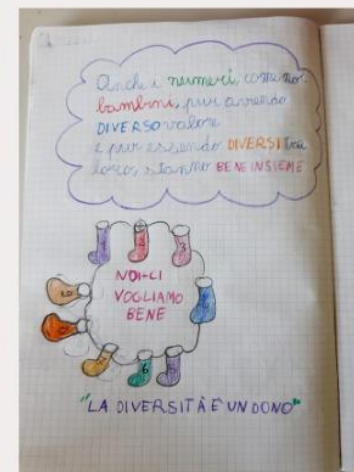 Anche i numeri, come noi
bambini, pur avendo
DIVERSO valore
e pur essendo DIVERSI tra
loro, stanno BENE INSIEME
1 2 3
NOI CI
VOGLIAMO
BENE
6
"LA DIVERSITÀ È UN DONO"